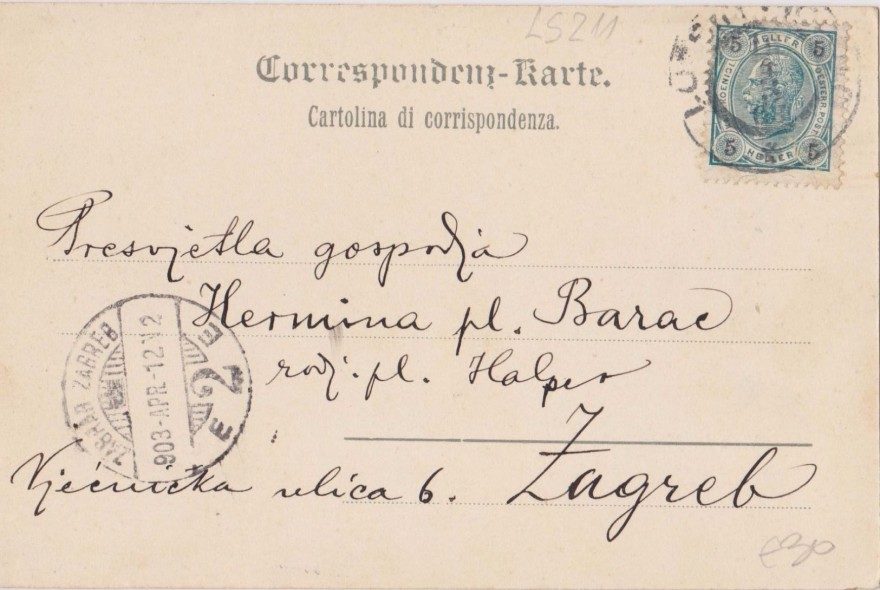 LS211
Correspondenz-Karte.
Cartolina di corrispondenza.
5 HELLER 5
5 HELLER 5
Presvjetla gospodja
Hermina pl. Barac
rodj. pl. Halper
Zagreb
Vjećnička ulica 6.
ZÁGRÁB ZAGREB
903-APR-12